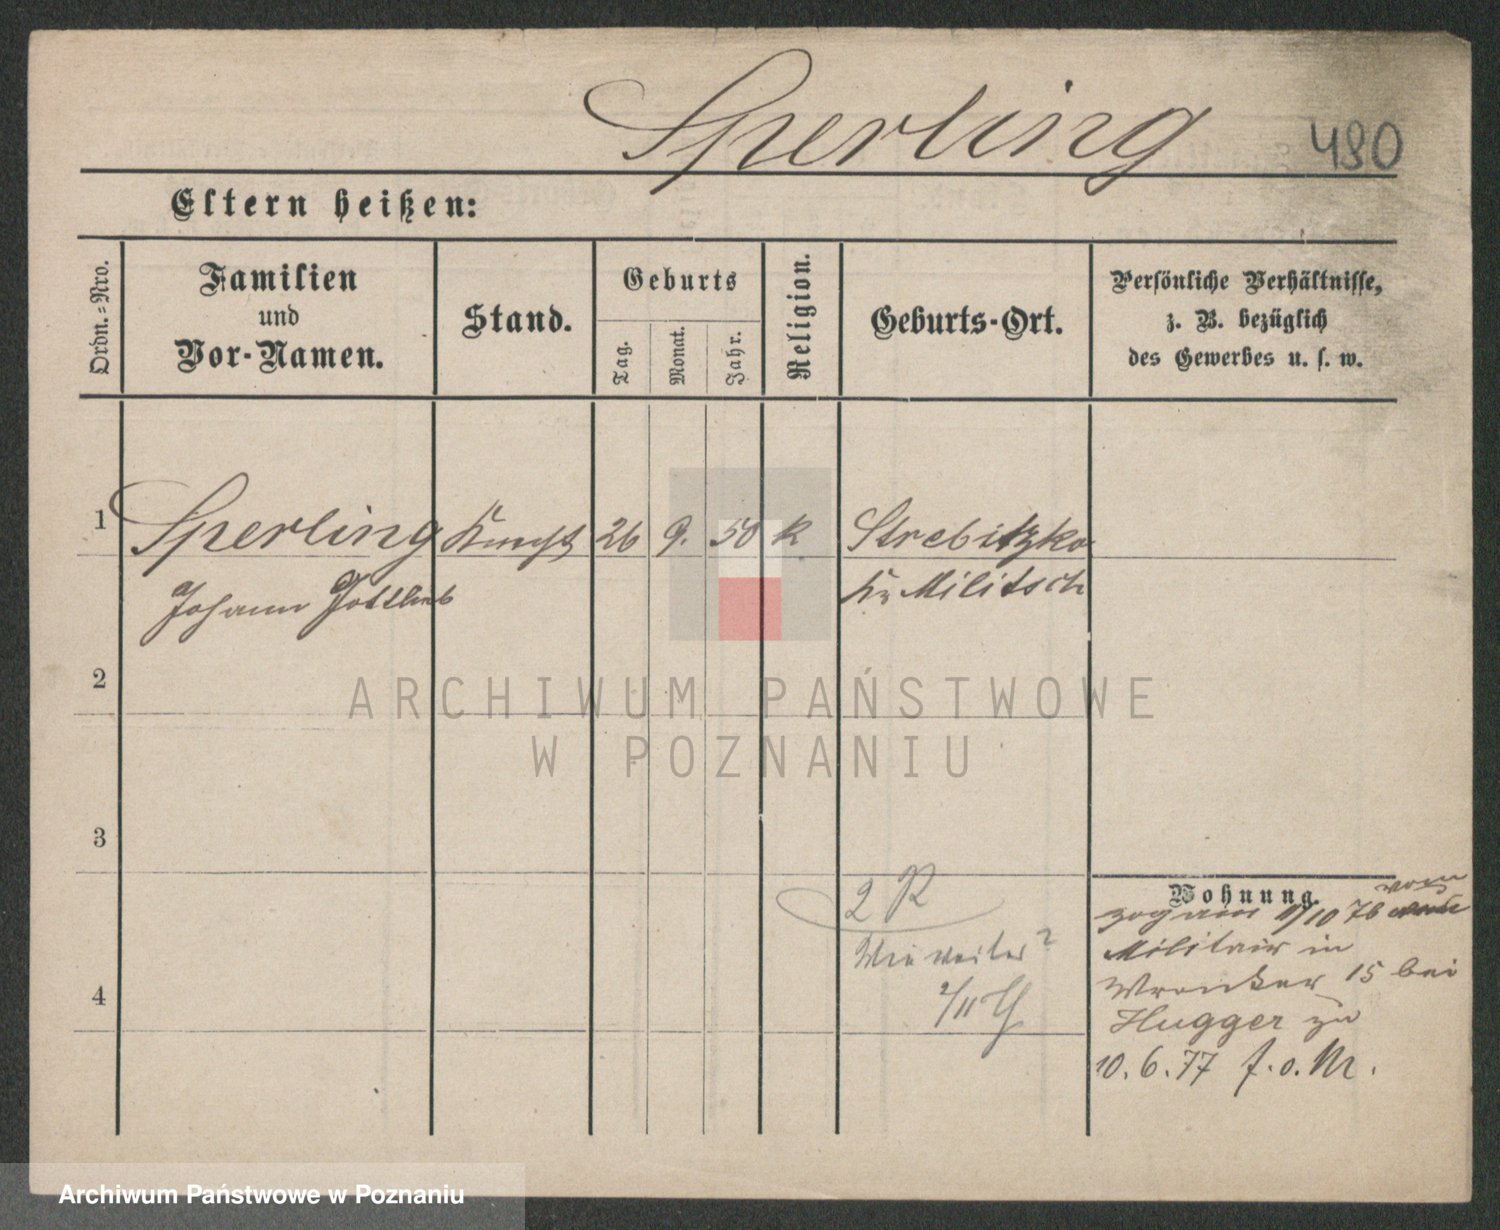 Sperling 490
Eltern heißen:
Ordn.-Nro.
Familien
und
Vor-Namen.
Stand.
Geburts
Tag.
Monat.
Jahr.
Religion.
Geburts-Ort.
Persönliche Verhältnisse,
z. B. bezüglich
des Gewerbes u. s. w.
1 Sperling Knecht 26 9. 50 k Strebitzko
Johann Gottlieb Kr Militsch
2
ARCHIWUM PAŃSTWOWE
W POZNANIU
3
2 R
Wie weiter?
2/11
4
Wohnung.
vom
zog am 11/10 76
Militair in
Wronker 15 bei
Hugger zu
10.6.77 f.o.M.
Archiwum Państwowe w Poznaniu